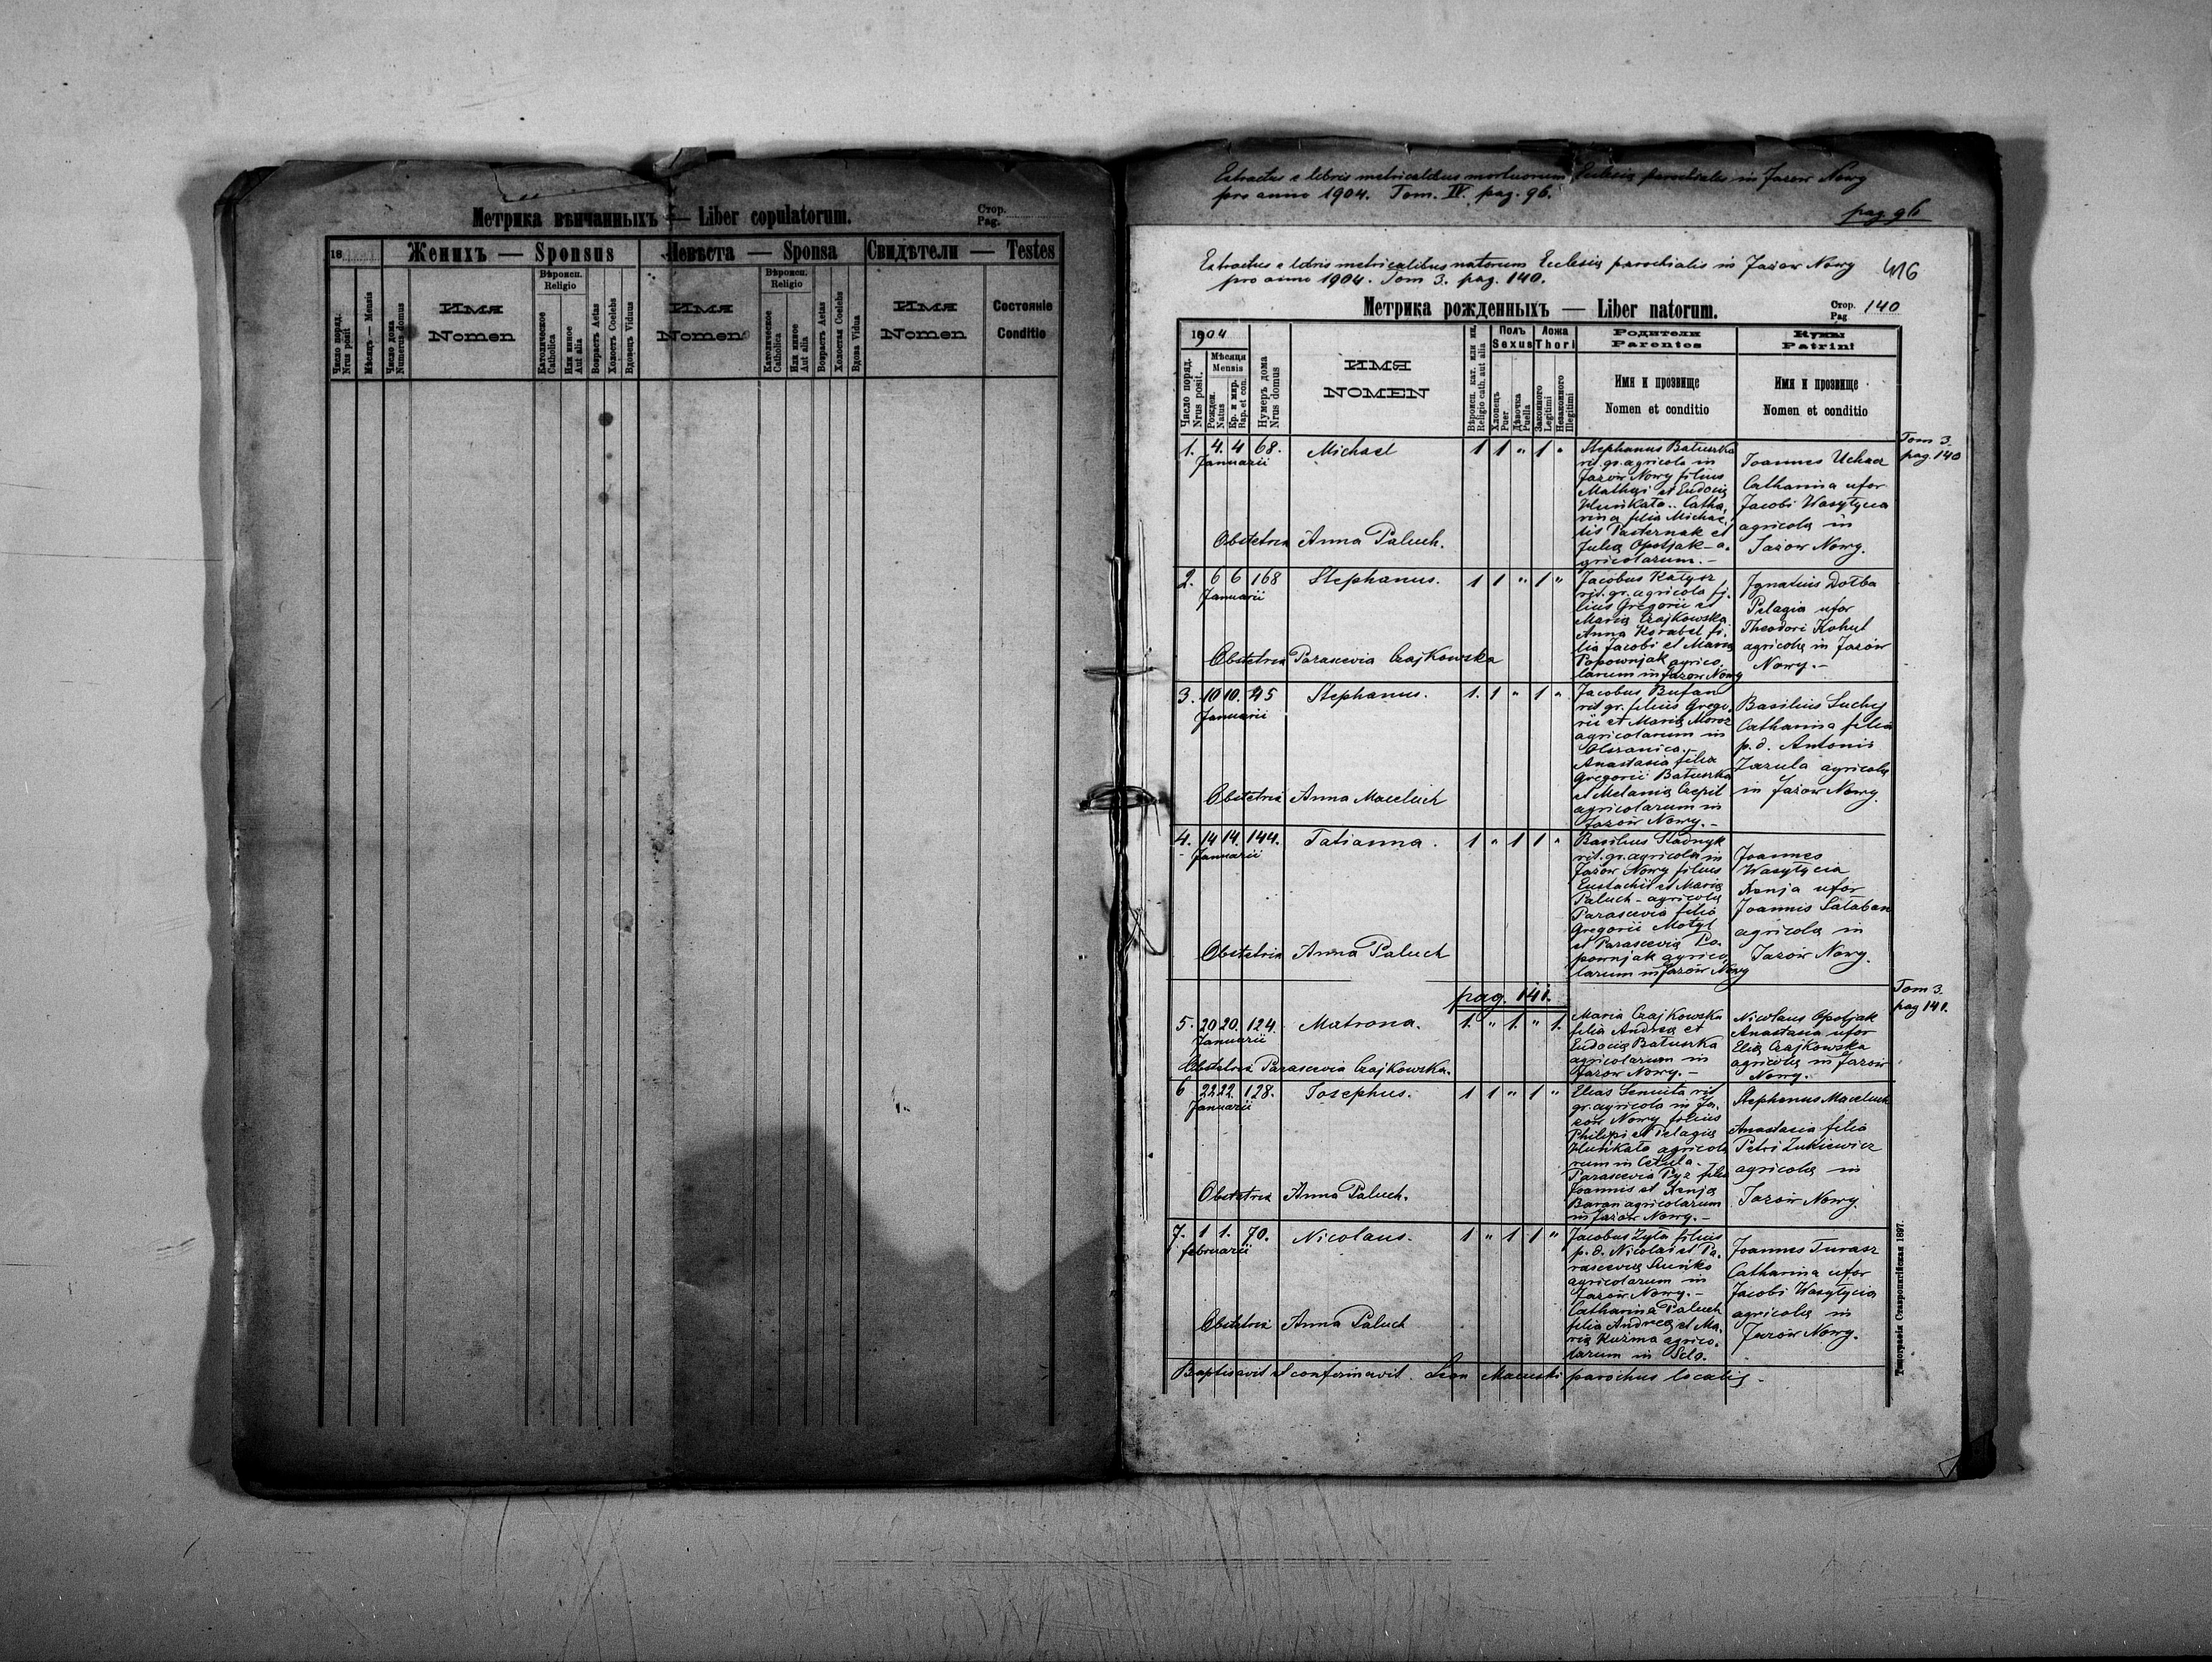 Метрика вѣнчанныхъ — Liber copulatorum.
Стор.
Pag.
18
Женихъ — Sponsus
Невѣста — Sponsa
Свидѣтели — Testes
Число поряд.
Nrus posit
Мѣсяць — Mensis
Число дома
Numerus domus
Имя
Nomen
Вѣроисп.
Religio
Католическое
Catholica
Или инное
Aut alia
Возрастъ Aetas
Холостъ Coelebs
Вдовецъ Viduus
Имя
Nomen
Вѣроисп.
Religio
Католическое
Catholica
Или инное
Aut alia
Возрастъ Aetas
Холостая Coelebs
Вдова Vidua
Имя
Nomen
Состояніе
Conditio
Extractus e libris metricalibus mortuorum Ecclesię parochialis in Jazow Nowy
pro anno 1904. Tom. IV. pag. 96.
pag. 96
Extractus e libris metricalibus natorum Ecclesię parochialis in Jażow Nowy
pro anno 1904. Tom 3. pag. 140.
416
Метрика рожденныхъ — Liber natorum.
Стор.
Pag 140
1904
Число поряд.
Nrus posit.
Мѣсяця
Mensis
Рожден.
Natus
Кр. и мир.
Bap. et con.
Нумеръ дома
Nrus domus
ИМЯ
NOMEN
Вѣроисп. кат. или ин.
Religio cath. aut alia
Полъ
Sexus
Хлопець
Puer
Дѣвочка
Puella
Ложа
Thori
Законного
Legitimi
Незаконного
Illegitimi
Родители
Parentes
Имя и прозвище
Nomen et conditio
Кумы
Patrini
Имя и прозвище
Nomen et conditio
Tom 3.
pag. 140
1. 4. 4 68. Michael 1 1 " 1 "
Januarii
Stephanus Batuszka
rit. gr. agricola in
Jazów Nowy filius
Mathęi et Eudocię
Huńkało.. Catha,
rina filia Michae,
lis Pasternak et
Julię Opotjak - a.
gricolarum. -
Joannes Uchacz
Catharina uxor
Jacobi Wasyłycia
agricolę in
Jażow Nowy.
Obstetrix Anna Paluch.
2. 6 6 168 Stephanus. 1 1 " 1 "
Januarii
Jacobus Katysz
rit. gr. agricola fi,
lius Gregorii et
Marię Czajkowska
Anna Korabel fi,
lia Jacobi et Marię
Popownjak agrico,
larum in Jazow Nowy
Ignatius Dołba
Pelagia uxor
Theodori Kohut
agricolę in Jazów
Nowy. -
Obstetrix Parascevia Czajkowska
3. 10 10. 245 Stephanus. 1. 1 " 1 "
Januarii
Jacobus Bufan
rit gr. filius Grego,
rii et Marię Moroz
agricolarum in
Olszanica. -
Anastasia filia
Gregorii Batuszka
et Melanię Czepil
agricolarum in
Jazów Nowy. -
Basilius Suchy
Catharina filia
p. d. Antonii
Zazula agricolę
in Jażow Nowy.
Obstetrix Anna Maceluch
4. 14 14. 144. Tatianna. 1 " 1 1 "
Januarii
Basilius Stadnyk
rit. gr. agricola in
Jazow Nowy filius
Eustachii et Marię
Paluch - agricolę
Parascevia filia
Gregorii Motyl
et Parascevię Po,
pownjak agrico,
larum in Jazów Nowy
Joannes
Wasyłycia
Xenja uxor
Joannis Sałaban
agricolę in
Jazów Nowy.
Obstetrix Anna Paluch
pag. 141.
Tom 3.
pag 141.
5. 20 20. 124. Matrona. 1. " 1. " 1.
Januarii
Maria Czajkowska
filia Andreę et
Eudocię Batuszka
agricolarum in
Jazow Nowy. -
Nicolaus Opotjak
Anastasia uxor
Elię Czajkowska
agricolę in Jazów
Nowy.
Obstetrix Parascevia Czajkowska.
6 22 22. 128. Josephus. 1 1 " 1 "
Januarii
Elias Semuta rit
gr. agricola in Ja,
zów Nowy filius
Philippi et Pelagię
Huńkało agricola
rum in Cetula.
Parascevia Pyż filia
Joannis et Xenję
Baran agricolarum
in Jazów Nowy. -
Stephanus Maceluch
Anastasia filia
Petri Lukiewicz
agricolę in
Jazów Nowy.
Obstetrix Anna Paluch.
7. 1 1. 70. Nicolaus. 1 " 1 1 "
februarii
Jacobus Zyla filius
p. d. Nicolai et Pa,
rascevię Suńko
agricolarum in
Jazów Nowy. -
Catharina Paluch
filia Andreę et Ma,
rię Kuzma agrico,
larum in Sclo.
Joannes Turasz
Catharina uxor
Jacobi Wasyłycia
agricolę in
Jazów Nowy.
Obstetrix Anna Paluch
Baptisavit et confirmavit. Leon parochus localis
Типографія Ставропигійская 1897.